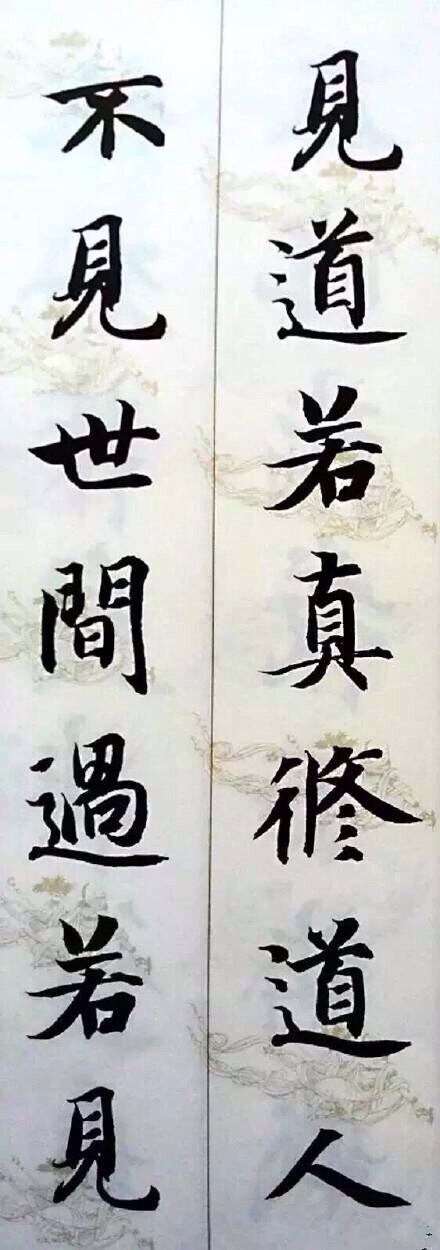 見道若真修道人
不見世間過若見